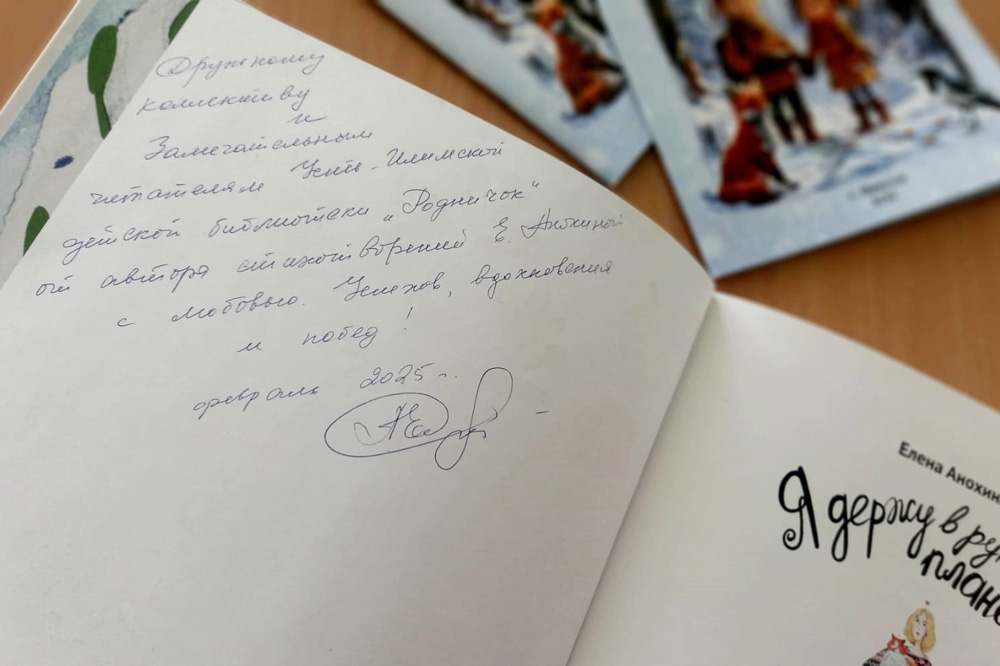 Дружному
коллективу
и
Замечательным
читателям Усть-Илимской
детской библиотеки „Родничок“
от автора стихотворений Е. Анохиной
с любовью. Успехов, вдохновения
и побед!
февраль 2025 г.
Елена Анохин
Я держу в
план